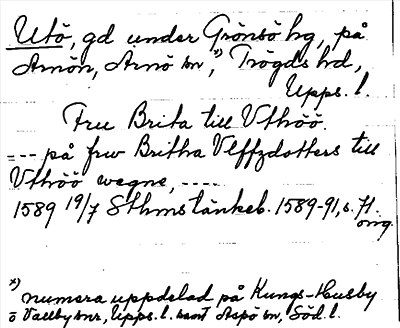 Utö, gd under Grönsö hg, på
Arnön, Arnö sn x), Trögds hd,
Upps. l.
Fru Brita till Vthöö.
--- på frw Britha Vlffzdotters till
Vthöö wegne, ----
1589 19/7 Sthms tänkeb. 1589-91, s. 71.
orig.
x) numera uppdelad på Kungs-Husby
o Vallby snr, Upps. l. samt Aspö sn, Söd. l.